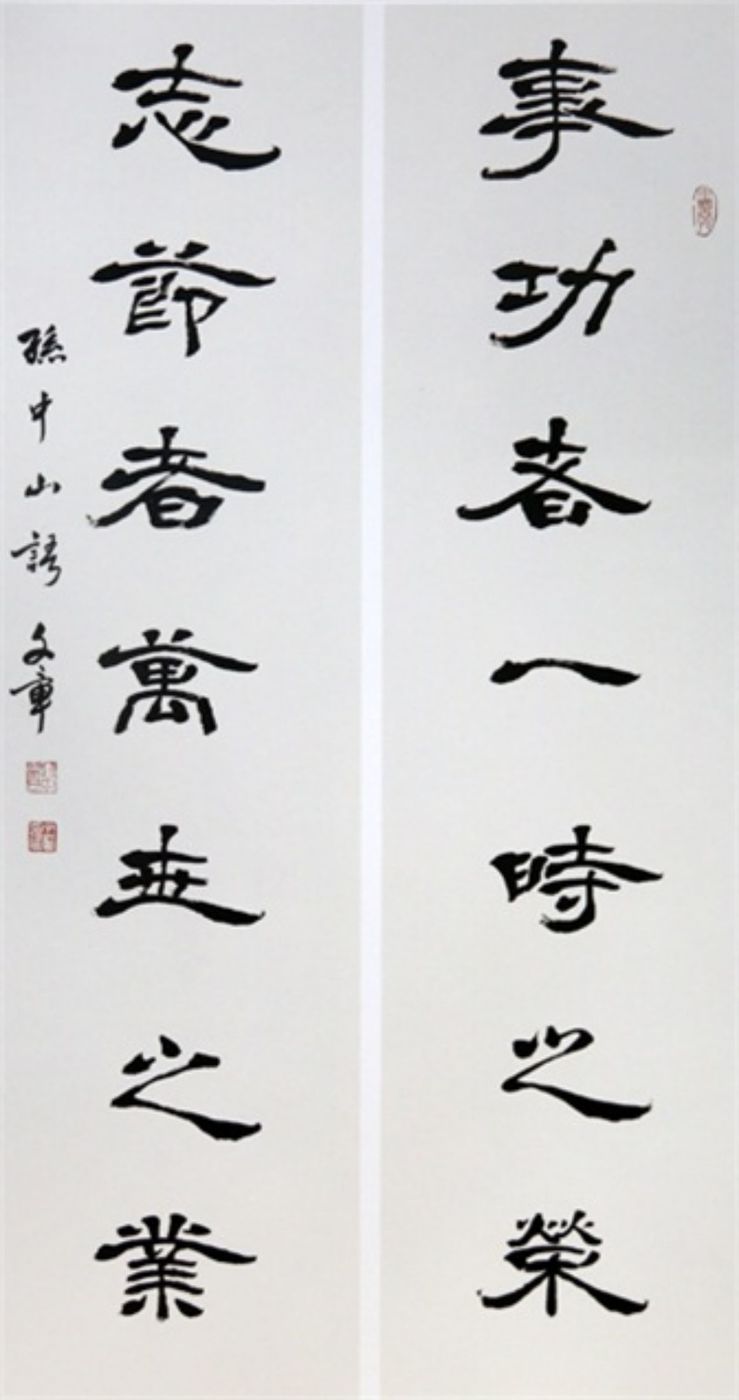 事功者一時之榮
志節者萬世之業
孫中山語 文章